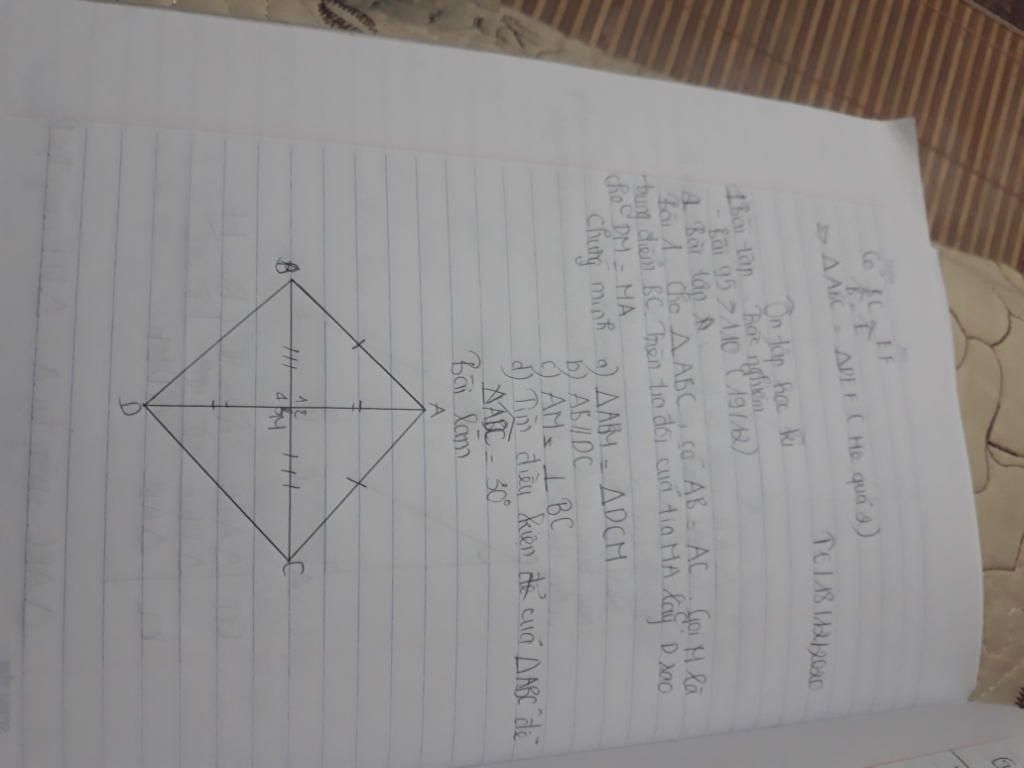 Có BC = EF
B = E
=> Δ ABC = Δ DEF ( Hệ quả 2)
TC / B / 12 / 2020
Ôn tập học kì
1 Bài tập trắc nghiệm
- Bài 95 > 110 ( 79/82)
2 Bài tập
Bài 1 cho Δ ABC, có AB = AC. Gọi M là
trung điểm BC. Trên tia đối của tia MA lấy D sao
cho DM = MA
chứng minh a) ΔABM = ΔDCM
b) AB // DC
c) AM = ⊥ BC
d) Tìm điều kiện của ΔABC để
ABC = 30°
Bài làm
A
B
1 2
M
C
D